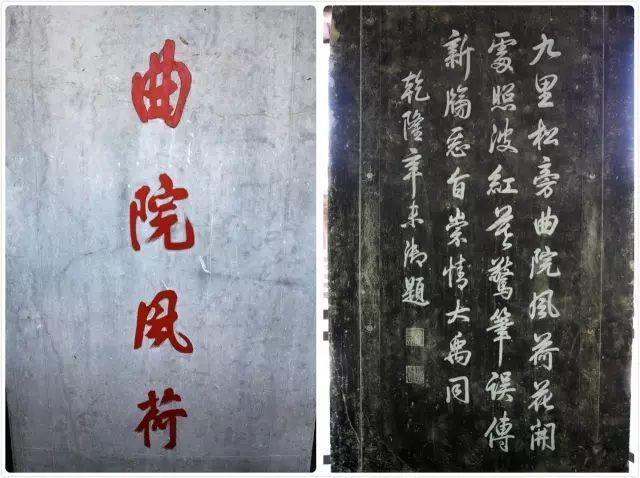 曲院風荷
九里松旁曲院風荷花開
處照波紅莫驚筆誤傳
新牓惡旨崇情大禹同
乾隆辛未御題